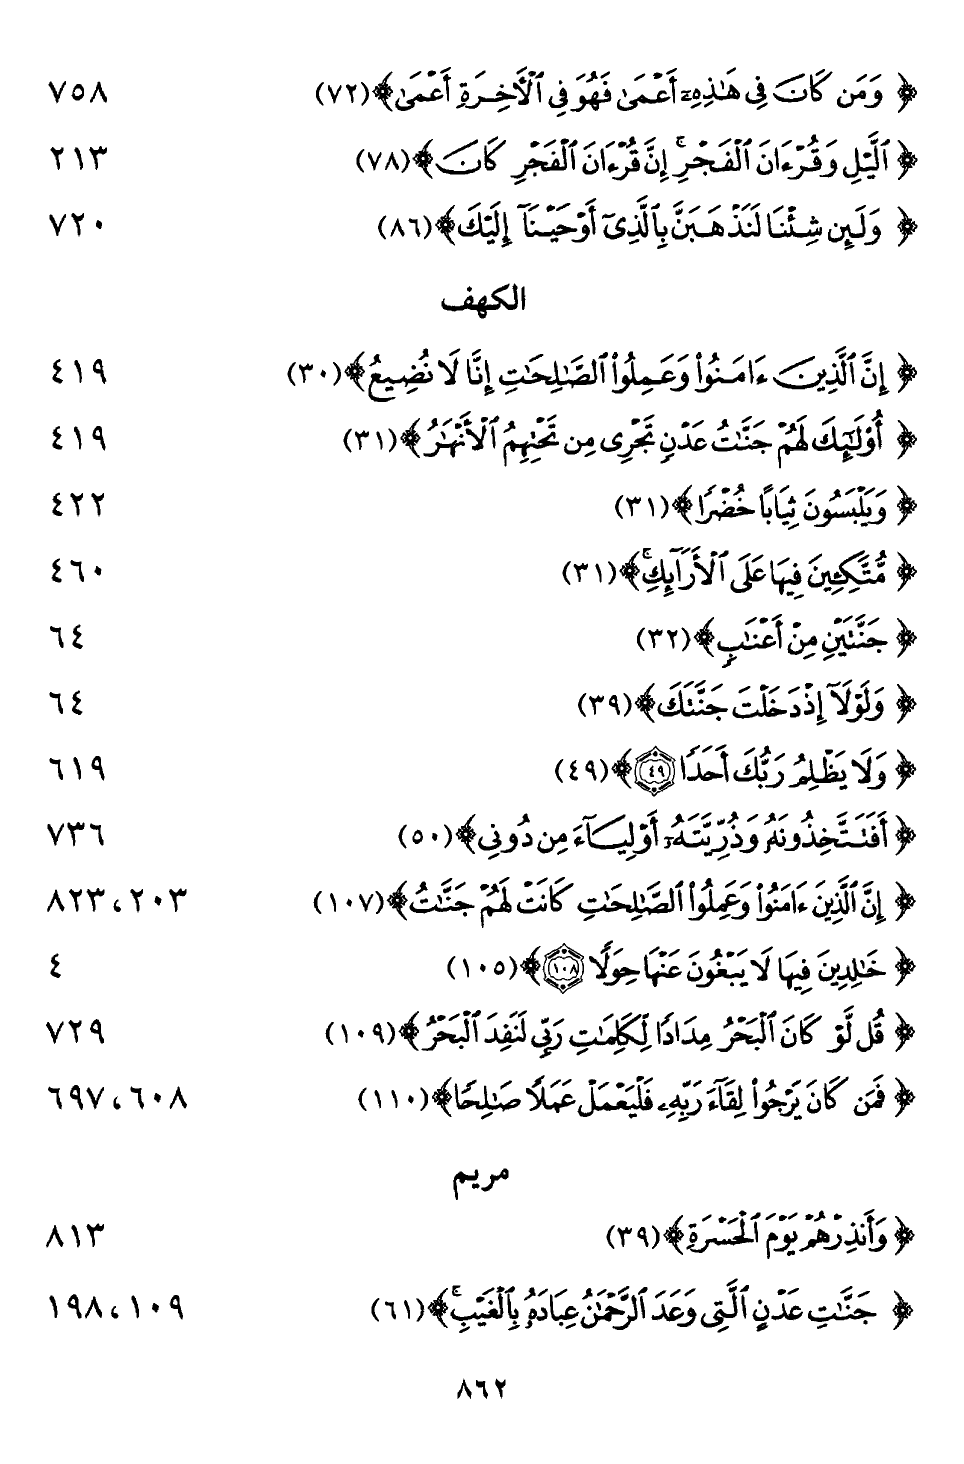 ﴿ وَمَن كَانَ فِي هَٰذِهِۦٓ أَعْمَىٰ فَهُوَ فِي ٱلْأَخِرَةِ أَعْمَىٰ ﴾ (٧٢) ٧٥٨
﴿ ٱلَّيْلِ وَقُرْءَانَ ٱلْفَجْرِ ۖ إِنَّ قُرْءَانَ ٱلْفَجْرِ كَانَ ﴾ (٧٨) ٢١٣
﴿ وَلَئِن شِئْنَا لَنَذْهَبَنَّ بِٱلَّذِيٓ أَوْحَيْنَآ إِلَيْكَ ﴾ (٨٦) ٧٢٠
الكهف
﴿ إِنَّ ٱلَّذِينَ ءَامَنُوا۟ وَعَمِلُوا۟ ٱلصَّٰلِحَٰتِ إِنَّا لَا نُضِيعُ ﴾ (٣٠) ٤١٩
﴿ أُو۟لَٰٓئِكَ لَهُمْ جَنَّٰتُ عَدْنٍ تَجْرِي مِن تَحْتِهِمُ ٱلْأَنْهَٰرُ ﴾ (٣١) ٤١٩
﴿ وَيَلْبَسُونَ ثِيَابًا خُضْرًا ﴾ (٣١) ٤٢٢
﴿ مُّتَّكِـِٔينَ فِيهَا عَلَى ٱلْأَرَآئِكِ ۚ ﴾ (٣١) ٤٦٠
﴿ جَنَّتَيْنِ مِنْ أَعْنَٰبٍ ﴾ (٣٢) ٦٤
﴿ وَلَوْلَآ إِذْ دَخَلْتَ جَنَّتَكَ ﴾ (٣٩) ٦٤
﴿ وَلَا يَظْلِمُ رَبُّكَ أَحَدًا ٤٩ ﴾ (٤٩) ٦١٩
﴿ أَفَتَتَّخِذُونَهُۥ وَذُرِّيَّتَهُۥٓ أَوْلِيَآءَ مِن دُونِي ﴾ (٥٠) ٧٣٦
﴿ إِنَّ ٱلَّذِينَ ءَامَنُوا۟ وَعَمِلُوا۟ ٱلصَّٰلِحَٰتِ كَانَتْ لَهُمْ جَنَّٰتُ ﴾ (١٠٧) ٢٠٣، ٨٢٣
﴿ خَٰلِدِينَ فِيهَا لَا يَبْغُونَ عَنْهَا حِوَلًا ١٠٨ ﴾ (١٠٥) ٤
﴿ قُل لَّوْ كَانَ ٱلْبَحْرُ مِدَادًا لِّكَلِمَٰتِ رَبِّي لَنَفِدَ ٱلْبَحْرُ ﴾ (١٠٩) ٧٢٩
﴿ فَمَن كَانَ يَرْجُوا۟ لِقَآءَ رَبِّهِۦ فَلْيَعْمَلْ عَمَلًا صَٰلِحًا ﴾ (١١٠) ٦٠٨، ٦٩٧
مريم
﴿ وَأَنذِرْهُمْ يَوْمَ ٱلْحَسْرَةِ ﴾ (٣٩) ٨١٣
﴿ جَنَّٰتِ عَدْنٍ ٱلَّتِي وَعَدَ ٱلرَّحْمَٰنُ عِبَادَهُۥ بِٱلْغَيْبِ ۚ ﴾ (٦١) ١٠٩، ١٩٨
٨٦٢